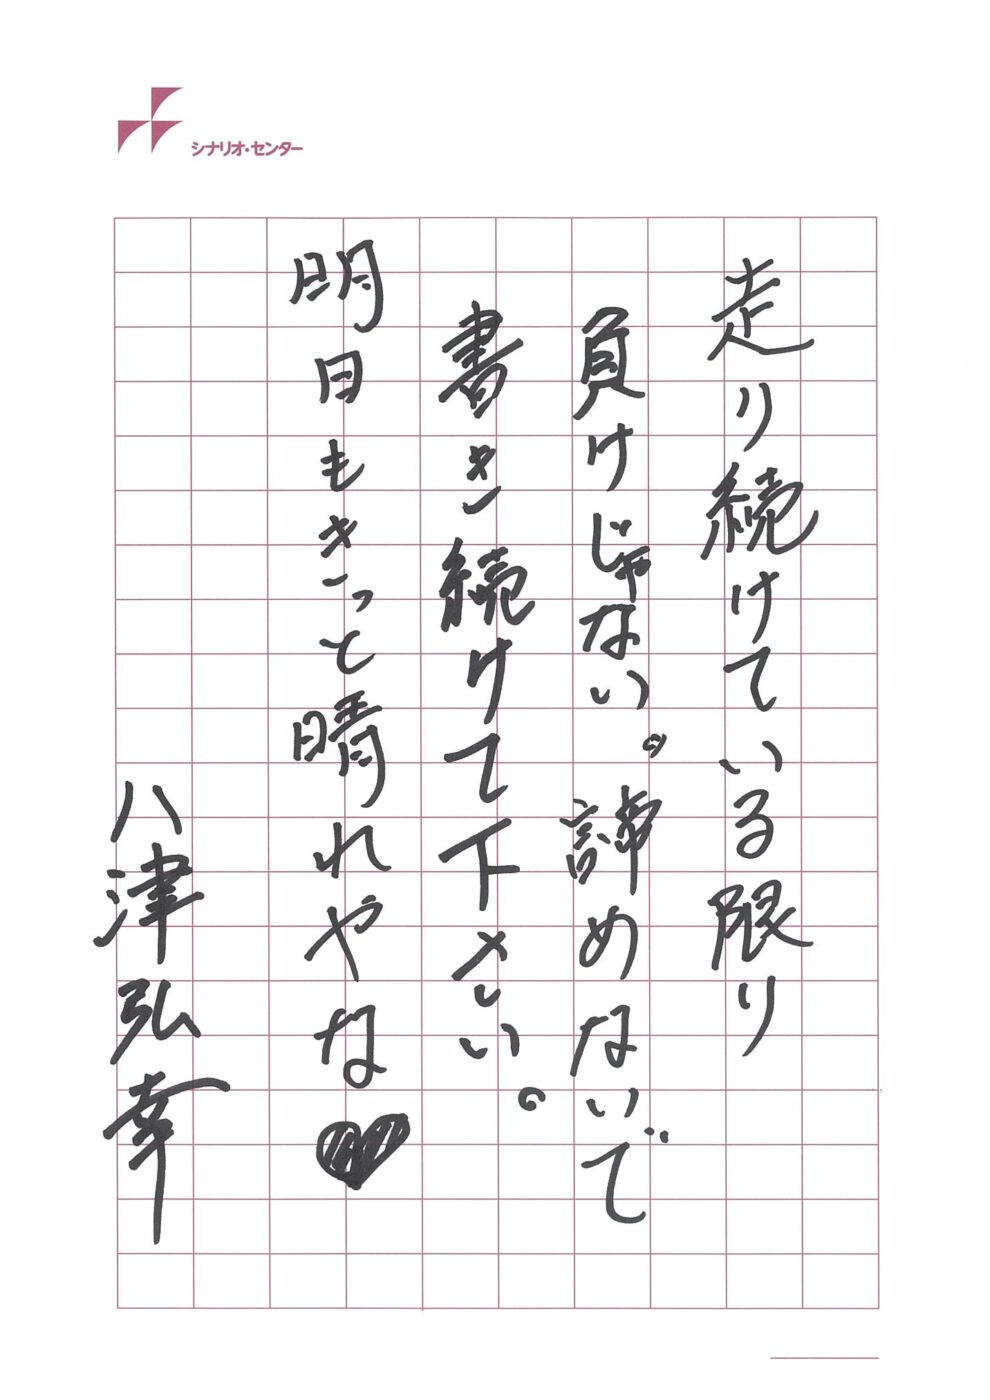 シナリオ・センター
走り続けている限り
負けじゃない。諦めないで
書き続けて下さい。
明日もきっと晴れやな
八津弘幸